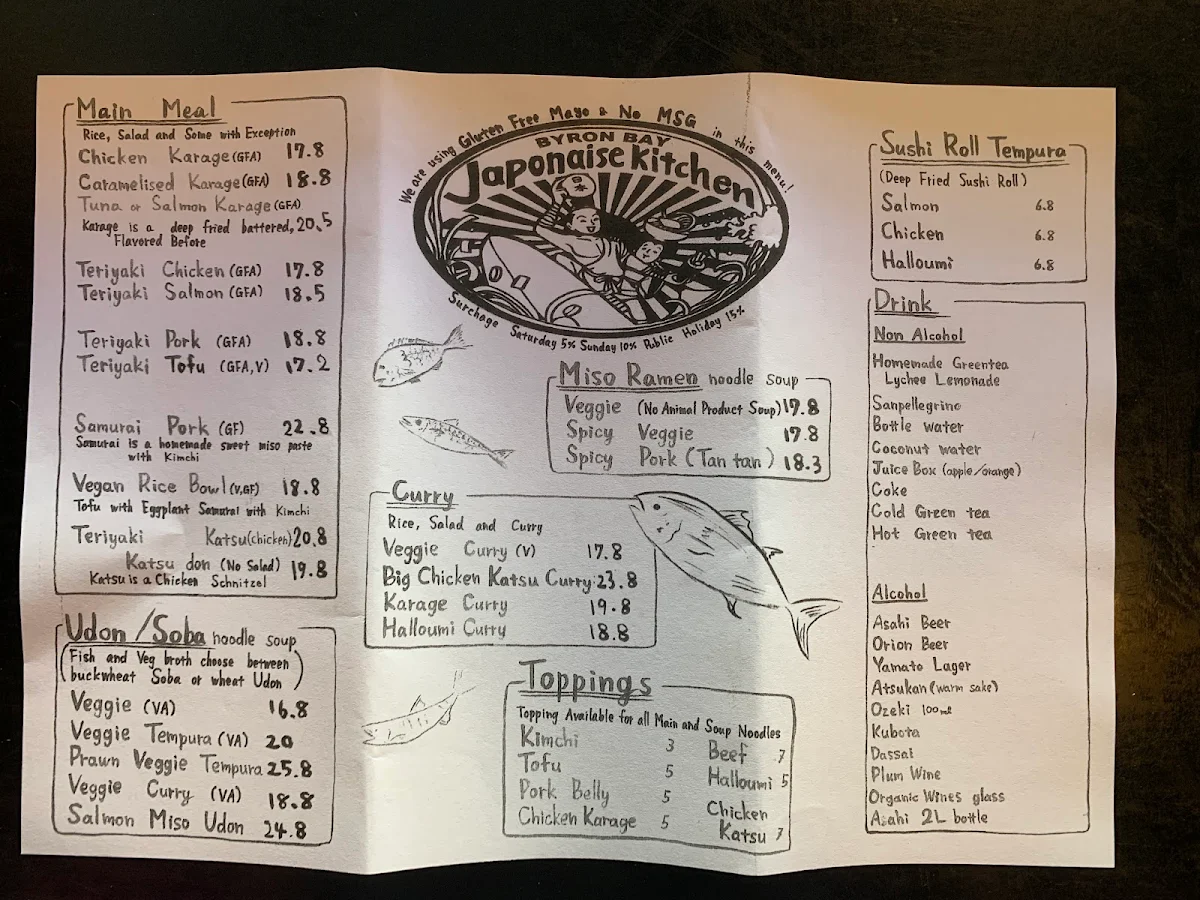 Main Meal
Rice, Salad and Some with Exception
Chicken Karage (GFA) 17.8
Caramelised Karage (GFA) 18.8
Tuna or Salmon Karage (GFA)
Karage is a deep fried battered, 20.5
Flavored Before
Teriyaki Chicken (GFA) 17.8
Teriyaki Salmon (GFA) 18.5
Teriyaki Pork (GFA) 18.8
Teriyaki Tofu (GFA,V) 17.2
Samurai Pork (GF) 22.8
Samurai is a homemade sweet miso paste
with Kimchi
Vegan Rice Bowl (V,GF) 18.8
Tofu with Eggplant Samurai with Kimchi
Teriyaki Katsu (chicken) 20.8
Katsu don (No Salad) 19.8
Katsu is a Chicken Schnitzel
Udon/Soba noodle soup
(Fish and Veg broth choose between
buckwheat Soba or wheat Udon)
Veggie (VA) 16.8
Veggie Tempura (VA) 20
Prawn Veggie Tempura 25.8
Veggie Curry (VA) 18.8
Salmon Miso Udon 24.8
We are using Gluten Free Mayo & No MSG in this menu!
BYRON BAY
Japonaise Kitchen
日本
Surchage Saturday 5% Sunday 10% Public Holiday 15%
Miso Ramen noodle soup
Veggie (No Animal Product Soup) 17.8
Spicy Veggie 17.8
Spicy Pork (Tan tan) 18.3
Curry
Rice, Salad and Curry
Veggie Curry (V) 17.8
Big Chicken Katsu Curry 23.8
Karage Curry 19.8
Halloumi Curry 18.8
Toppings
Topping Available for all Main and Soup Noodles
Kimchi 3
Tofu 5
Pork Belly 5
Chicken Karage 5
Beef 7
Halloumi 5
Chicken
Katsu 7
Sushi Roll Tempura
(Deep Fried Sushi Roll)
Salmon 6.8
Chicken 6.8
Halloumi 6.8
Drink
Non Alcohol
Homemade Greentea
Lychee Lemonade
Sanpellegrino
Bottle water
Coconut water
Juice Box (apple/orange)
Coke
Cold Green tea
Hot Green tea
Alcohol
Asahi Beer
Orion Beer
Yamato Lager
Atsukan (warm sake)
Ozeki 100ml
Kubota
Dassai
Plum Wine
Organic Wines glass
Asahi 2L bottle